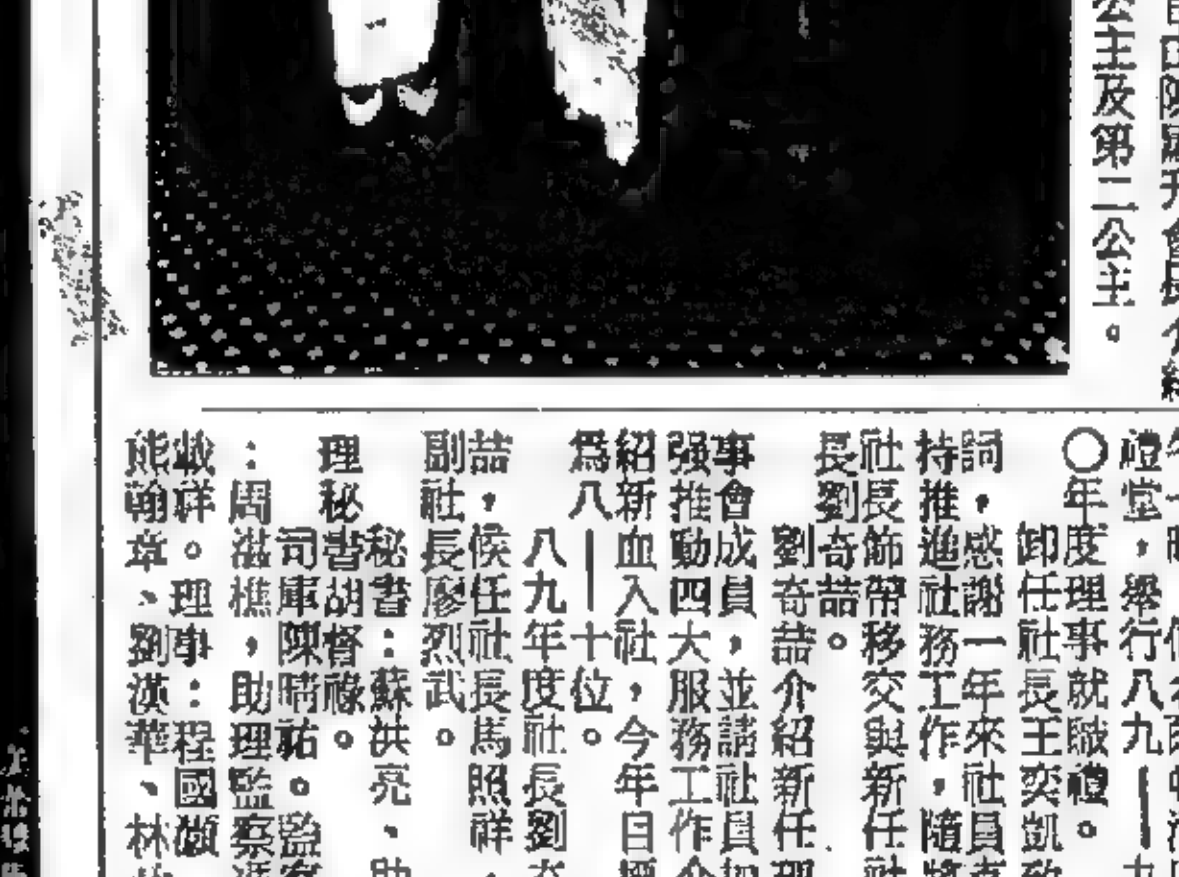 公主及第二公主。
禮堂,舉行八九——九
〇年度理事就職禮。
卸任社長王奕凱致
詞,感謝一年來社員
持推進社務工作,隨將
社長飾帶移交與新任社
長劉奇喆。
劉奇喆介紹新任理
事會成員,並請社員加
强推動四大服務工作,介
紹新血入社,今年目標
爲八——十位。
八九年度社長劉奇
喆,候任社長馬照祥,
副社長廖烈武。
秘書:蘇洪亮、助
理秘書胡督祿。
司庫陳晴祐。監察
:周滋樵,助理監察
祥。理事:程國
熊翰章、劉漢華、林